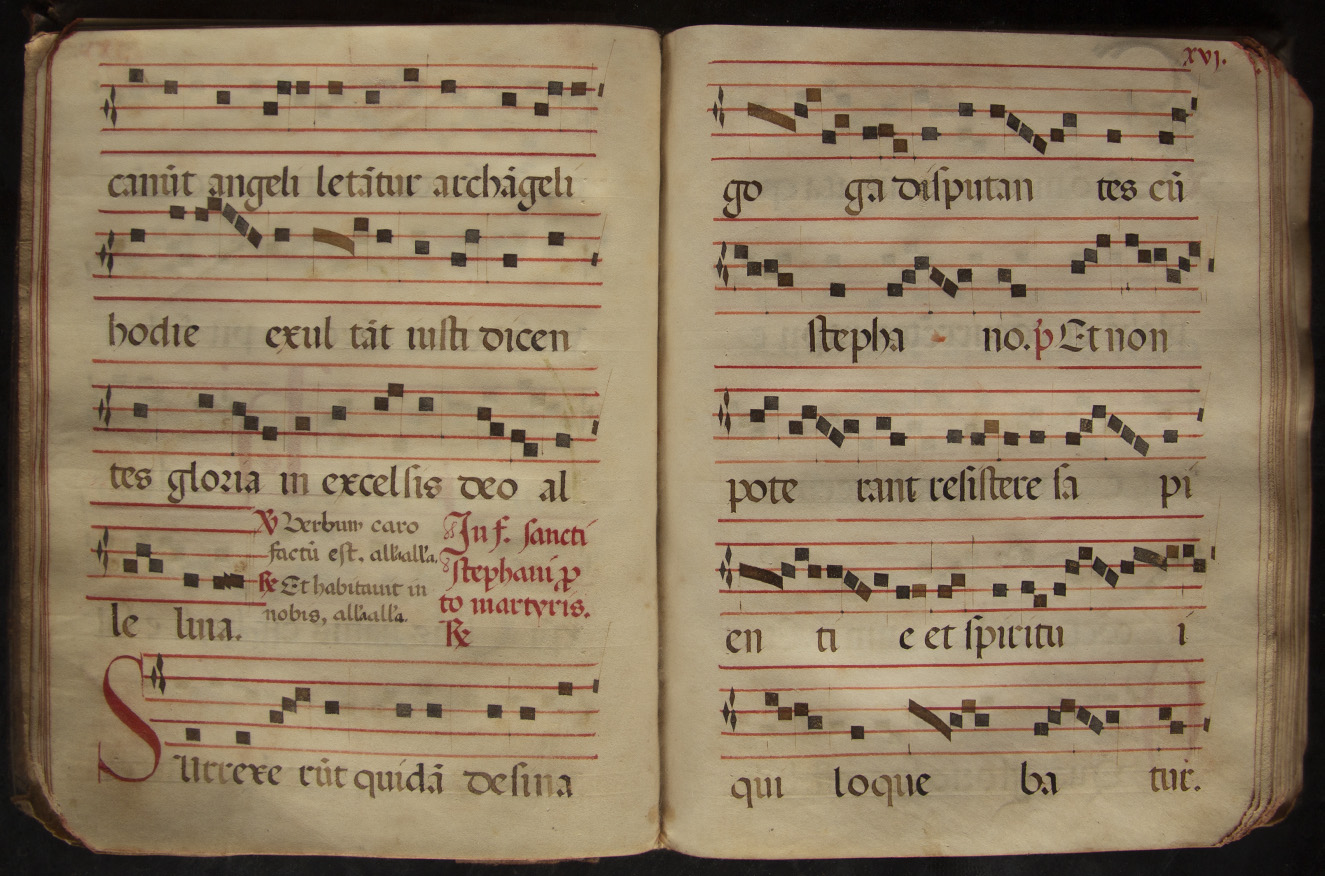 canūt angeli letātur archāgeli
hodie exul tāt iusti dicen
tes gloria in excelsis deo al
le luia.
℣ Verbum caro
factū est. all'a all'a.
℟ Et habitauit in
nobis, all'a all'a.
In f. sancti
Stephani p̄
to martyris.
℟
Surrexe rūt quidā de sina
xvj.
go ga disputan tes cū
stepha no. p̄ Et non
pote rant resistere sa pi
en ti e et spiritu i
qui loque ba tur.